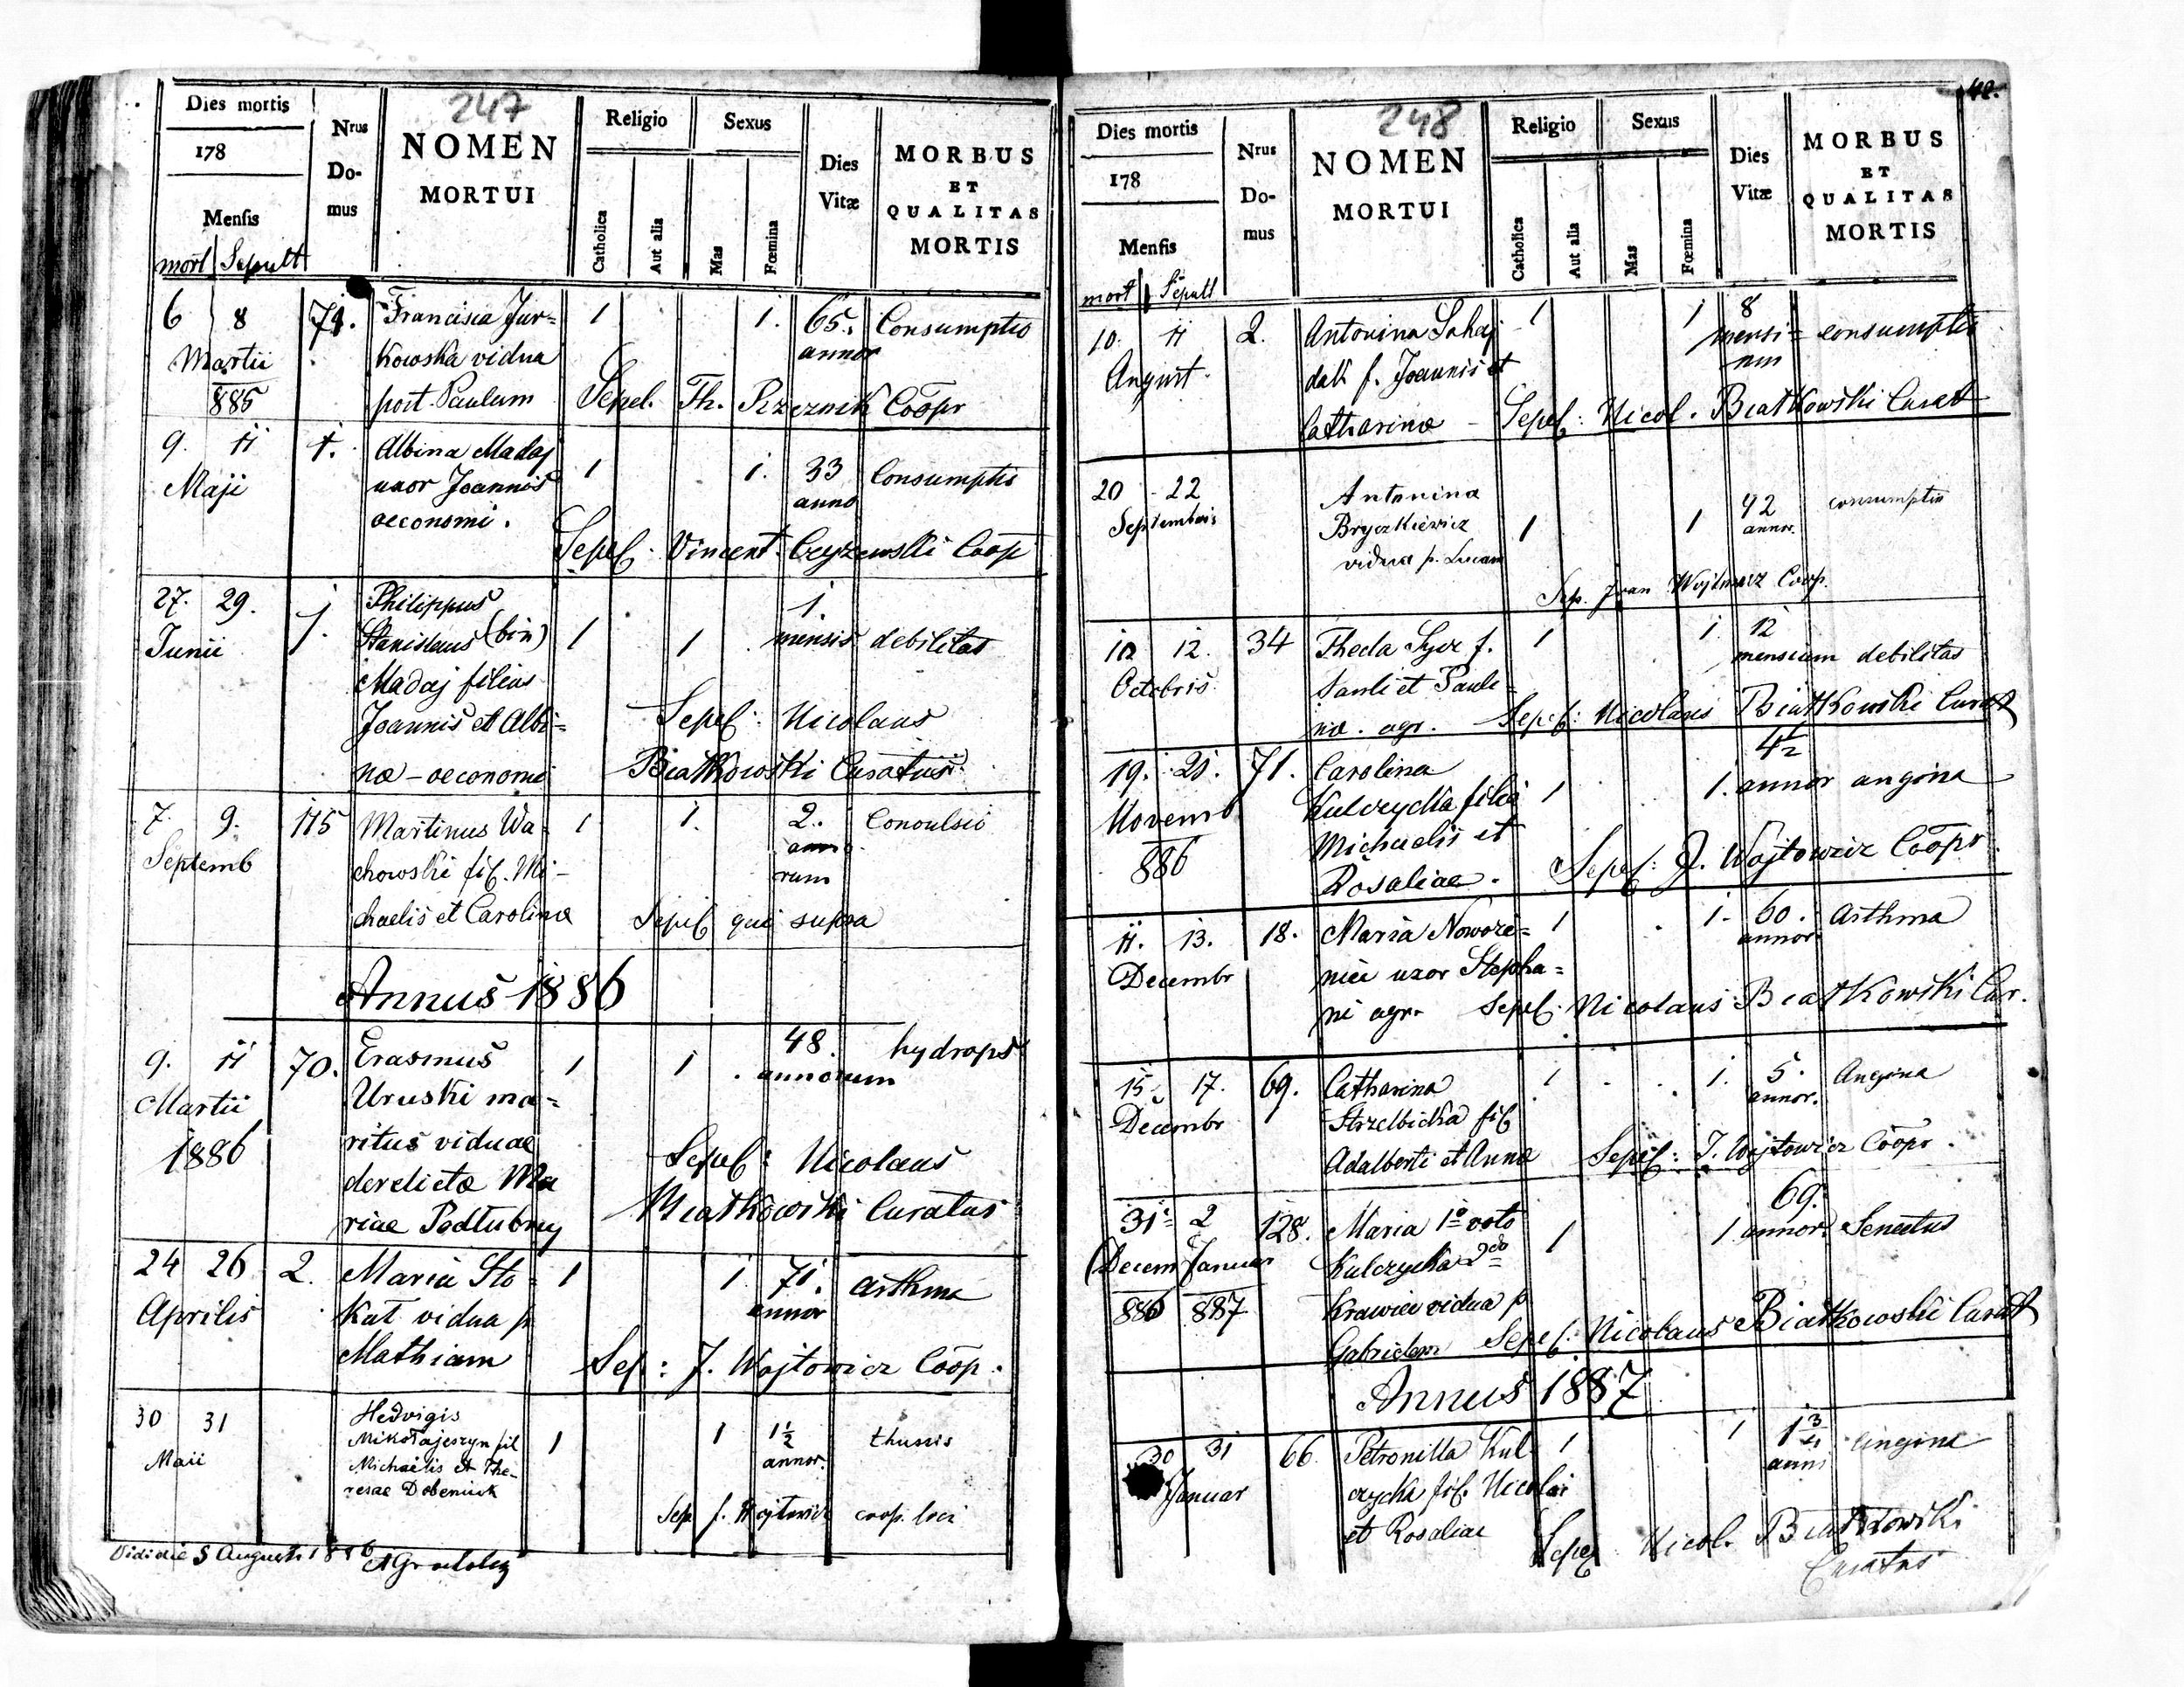 247
Dies mortis
178
Mensis
mort Sepult
Nrus
Do-
mus
NOMEN
MORTUI
Religio
Catholica
Aut alia
Sexus
Mas
Fœmina
Dies
Vitæ
MORBUS
ET
QUALITAS
MORTIS
6 8 Francisca Jur= 1 1. 65. Consumptio
Martii kowska vidua annor
885 post Paulum Sepel. Th. Rzeznik Coopr
9. 11 1. Albina Madaj 1 1. 33 Consumptio
Maji uxor Joannis anno
oeconomi. Sepel. Vincent. Czyzewski Coop
27. 29. 1. Philippus 1.
Junii Stanislaus (bin) 1 1 mensis debilitas
Madaj filius
Joannis et Albi= Sepel: Nicolaus
næ - oeconomi Białkowski Curatus
7. 9. 115 Martinus Wa- 1 1. 2. Convulsio
Septemb chowski fil. Mi- anno
rum
chaelis et Carolinæ Sepel qui supra
Annus 1886
9. 11 70. Erasmus 1 1 48. hydrops
Martii Uruski ma= annorum
1886 ritus viduae
derelictæ Ma Sepel: Nicolaus
riae Podłubny Białkowski Curatus
24 26 2. Maria Sto= 1 1 71. asthma
Aprilis kat vidua p annor
Mathiam Sep: J. Wojtowicz Coop.
30 31 Hedvigis
Maii Mikołajeszyn fil 1 1 1½ thussis
Michaelis et The- annor.
resae Dobeniuk
Sep J. Wojtowicz coop. loci
Vidi die 5 Augusti 1886
248
42.
Dies mortis
178
Mensis
mort Sepult
Nrus
Do-
mus
NOMEN
MORTUI
Religio
Catholica
Aut alia
Sexus
Mas
Fœmina
Dies
Vitæ
MORBUS
ET
QUALITAS
MORTIS
10. 11 2. Antonina Sahaj 1 1 8 consumptio
August. dak f. Joannis et mensi=
num
Catharinæ - Sepel: Nicol. Białkowski Curat
20 - 22 Antonina 42 consumptio
Septembris Bryczkiewicz 1 1 annor.
vidua p. Lucam
Sep. Joan Wojtowicz Coop.
10 12. 34 Thecla Sycz f. 1 1. 12
Octobris Pauli et Pauli- mensium debilitas
næ. agr. Sepel: Nicolaus Białkowski Curat
19. 21. 71. Carolina 4½
Novemb Kulczycka filia 1 1. annor angina
886 Michaelis et
Rosaliae. Sepel: J. Wojtowicz Coopr.
11. 13. 18. Maria Noworó= 1 1. 60. Asthma
Decembr annor
uxor Stepha=
ni agr. Sepel. Nicolaus Białkowski Cur.
15. 17. 69. Catharina 1 1. 5. Angina
Decembr Strzelbicka fil annor.
Adalberti et Annæ Sepel: J. Wojtowicz Coopr.
69.
31 2 128. Maria 1º voto 1 1 annor. Senectus
Decem Januar Kulczycka 2do
886 887 Krawiec vidua p
Gabrielem Sepel: Nicolaus Białkowski Curat
Annus 1887
30 31 66. Petronilla Kul 1 1 1¾ Angina
Januar czycka fil. Nicolai anni
et Rosaliae Sepel Nicol. Białkowski
Curatus